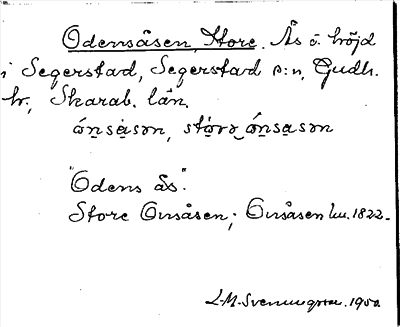 Odensåsen, Store. Ås o. höjd
i Segerstad, Segerstad s:n, Gudh.
hr, Skarab. län.
ó̱nsåsən, stó̱rə ó̱nsåsən
"Odens ås".
Store Onsåsen; Onsåsen hu. 1822.
L-M. Svenungsson. 1950